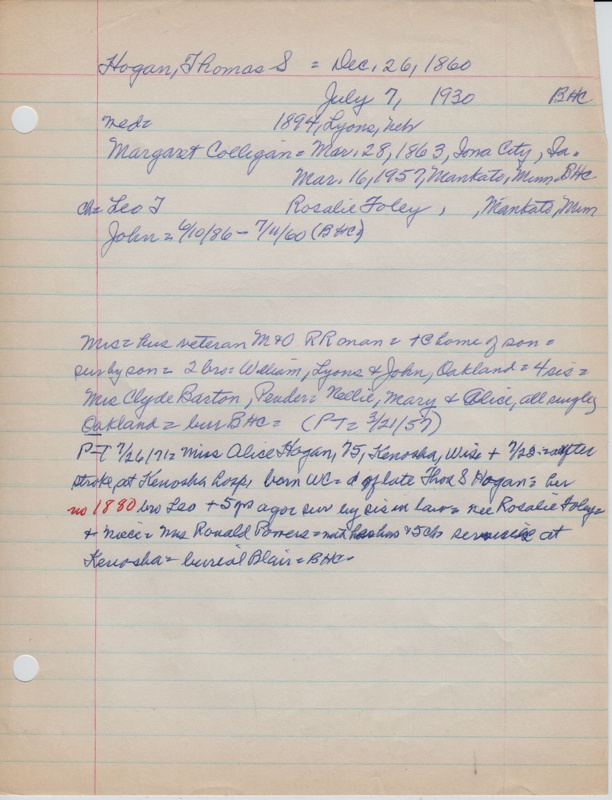 Hogan, Thomas S = Dec. 26, 1860
July 7, 1930 BHC
med= 1894, Lyons, Neb
Margaret Colligan = Mar. 28, 1863, Iona City, Ia.
Mar. 16, 1957, Mankato, Minn. BHC
ch= Leo T Rosalie Foley, , Mankato, Minn
John = 6/10/86 - 7/11/60 (BHC)
Mrs = hus veteran M&O RR man = + @ home of son =
sur by son = 2 bro = William, Lyons & John, Oakland = 4 sis =
Mrs Clyde Barton, Pender = Nellie, Mary & Alice, all single,
Oakland = bur BHC = (PT = 3/21/57)
P-T 7/26/71 = Miss Alice Hogan, 75, Kenosha, Wisc + 7/23 = after
stroke, at Kenosha hosp, born WC = d of late Thos S Hogan = her
no 1880 bro Leo + 5 yrs ago = sur by sis in law = nee Rosalie Foley =
& niece = Mrs Ronald Powers = services at
Kenosha = burial Blair = BHC -